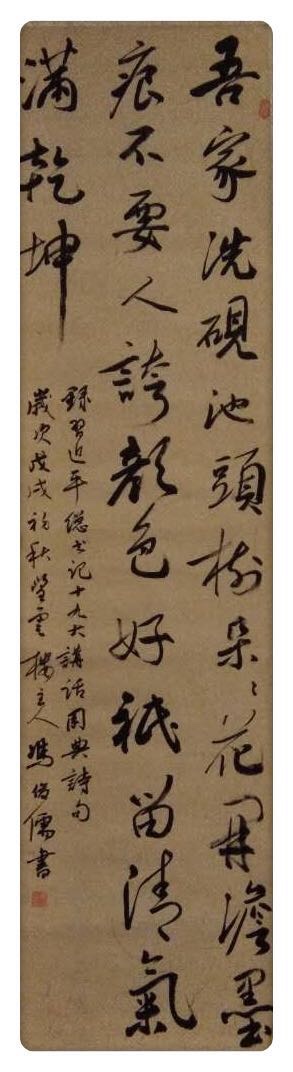 吾家洗硯池頭樹朵〻花開澹墨
痕不要人誇顏色好祇留清氣
滿乾坤
錄習近平總书记十九大講話用典詩句
歲次戊戌初秋瑩雲樓主人馮儒書